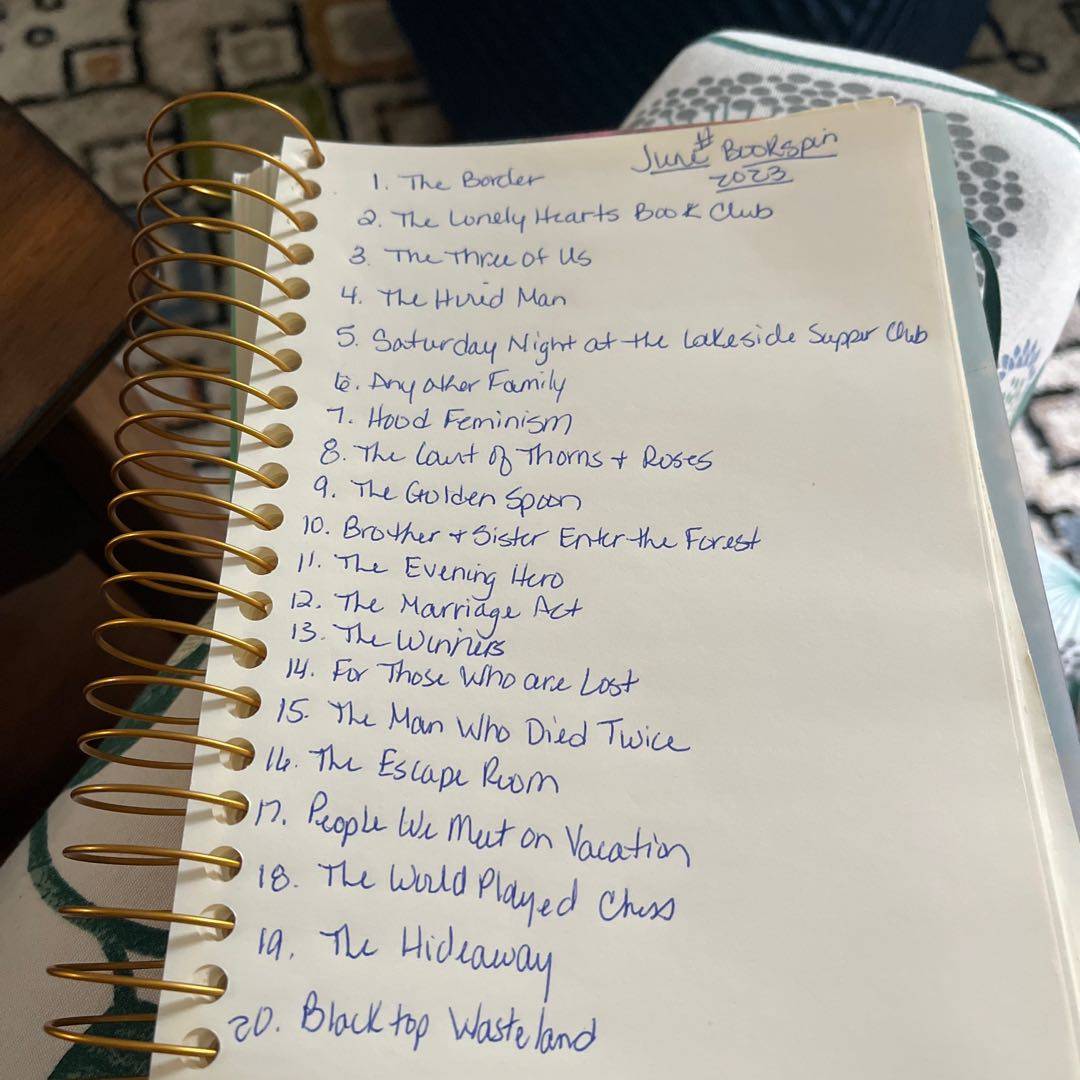 June #Bookspin
2023
1. The Border
2. The Lonely Hearts Book Club
3. The Three of Us
4. The Hired Man
5. Saturday Night at the Lakeside Supper Club
6. Any other Family
7. Hood Feminism
8. The Court of Thorns + Roses
9. The Golden Spoon
10. Brother + Sister Enter the Forest
11. The Evening Hero
12. The Marriage Act
13. The Winners
14. For Those Who are Lost
15. The Man Who Died Twice
16. The Escape Room
17. People We Meet on Vacation
18. The World Played Chess
19. The Hideaway
20. Blacktop Wasteland